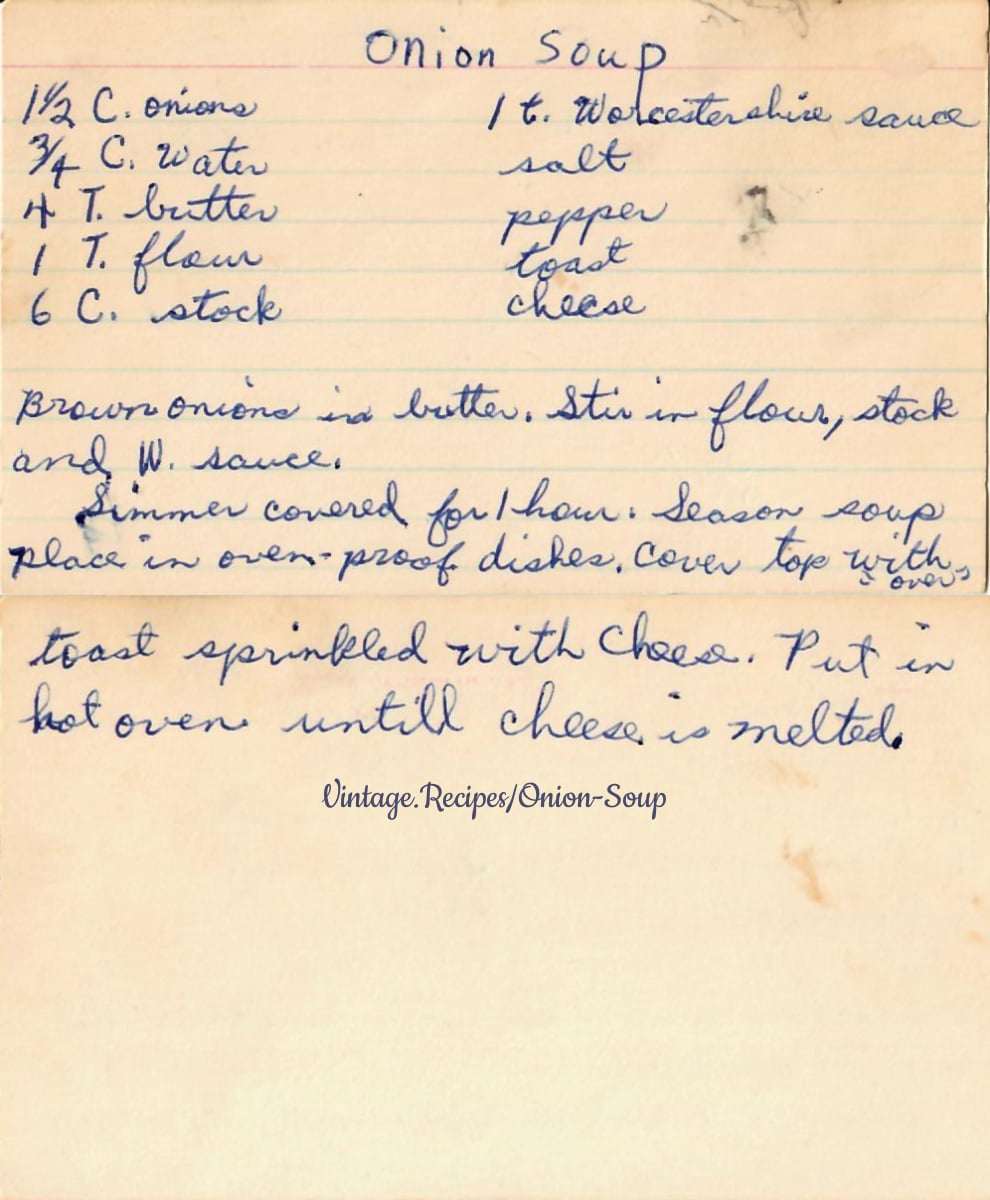 Onion Soup
1 1/2 C. onions
3/4 C. Water
4 T. butter
1 T. flour
6 C. stock
1 t. Worcestershire sauce
salt
pepper
toast
cheese
Brown onions in butter. Stir in flour, stock
and W. sauce.
Simmer covered for 1 hour. Season soup
place in oven-proof dishes. Cover top with
over
toast sprinkled with Cheese. Put in
hot oven untill cheese is melted.
Vintage.Recipes/Onion-Soup